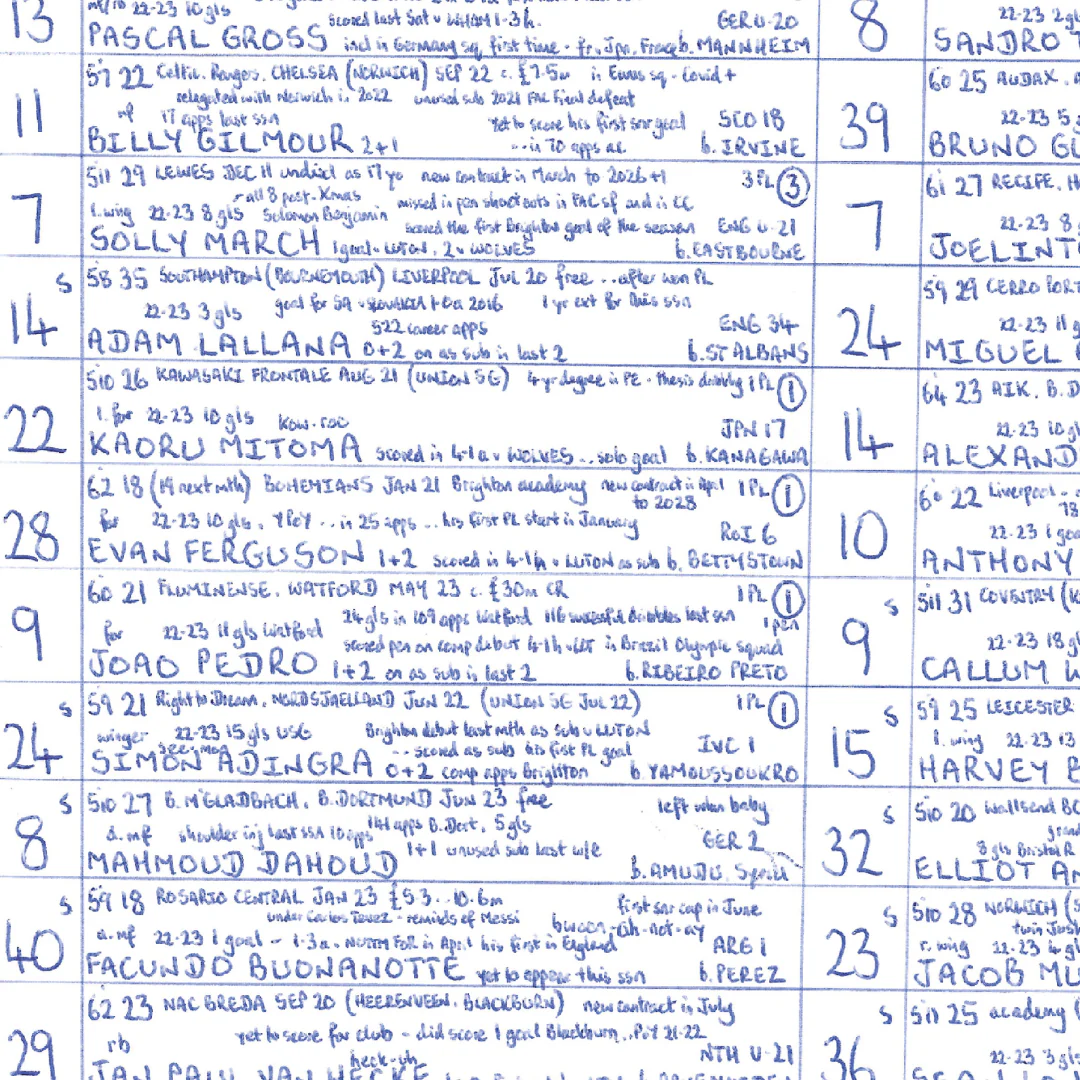 13
mf/rb 22-23 10 gls scored last Sat v WHAM 1-3 h. GER U-20
PASCAL GROSS incl in Germany sq, first time - fr, Jpn, France b. MANNHEIM
11
57 22 Celtic. Rangers. CHELSEA (NORWICH) SEP 22 c. £7.5m in Euros sq - Covid+
relegated with Norwich in 2022 unused sub 2021 FAC Final defeat
mf 17 apps last ssn Yet to score his first snr goal SCO 18
BILLY GILMOUR 2+1 ...in 70 apps ac. b. IRVINE
7
511 29 LEWES DEC 11 undiscl as 17 yo new contract in March to 2026+1 3 PL (3)
all 8 post-Xmas missed in pen shoot outs in FAC sf and in CC
l.wing 22-23 8 gls Solomon Benjamin scored the first Brighton goal of the season ENG U-21
SOLLY MARCH 1 goal v LUTON, 2 v WOLVES b. EASTBOURNE
s
14
58 35 SOUTHAMPTON (BOURNEMOUTH) LIVERPOOL Jul 20 free ...after won PL
22-23 3 gls goal for SA v SLOVAKIA Oct 2016 1 yr ext for this ssn
522 career apps ENG 34
ADAM LALLANA 0+2 on as sub in last 2 b. ST ALBANS
22
510 26 KAWASAKI FRONTALE AUG 21 (UNION SG) 4-yr degree in PE - thesis dribbling 1 PL (1)
l. for 22-23 10 gls kow-roo JPN 17
KAORU MITOMA scored in 4-1 a v WOLVES ...solo goal b. KANAGAWA
28
62 18 (19 next mth) BOHEMIANS JAN 21 Brighton academy new contract in April 1 PL (1)
to 2028
for 22-23 10 gls, YPOY ...in 25 apps ...his first PL start in January RoI 6
EVAN FERGUSON 1+2 scored in 4-1 h v LUTON as sub b. BETTYSTOWN
9
60 21 FLUMINENSE, WATFORD MAY 23 c. £30m CR 1 PL (1)
24 gls in 109 apps Watford 116 successful dribbles last ssn 1 pen
for 22-23 11 gls Watford scored pen on comp debut 4-1 h v LUT in Brazil Olympic squad
JOAO PEDRO 1+2 on as sub in last 2 b. RIBEIRO PRETO
s
24
59 21 Right to Dream, NORDSJAELLAND JUN 22 (UNION SG JUL 22) 1 PL (1)
winger 22-23 15 gls USG Brighton debut last mth as sub v LUTON
see-mon ...scored as sub his first PL goal IVC 1
SIMON ADINGRA 0+2 comp apps Brighton b. YAMOUSSOUKRO
s
8
510 27 B. M'GLADBACH, B. DORTMUND JUN 23 free left when baby
d. mf shoulder inj last ssn 10 apps 141 apps B. Dort, 5 gls GER 2
MAHMOUD DAHOUD 1+1 unused sub last w/e b. AMUDU, Syria
s
40
59 18 ROSARIO CENTRAL JAN 23 £5.3...10.6m first snr cap in June
under Carlos Tevez - reminds of Messi bwoon-ah-not-ay
a. mf 22-23 1 goal - 1-3 a v NOTTM FOR in April his first in England ARG 1
FACUNDO BUONANOTTE yet to appear this ssn b. PEREZ
29
62 23 NAC BREDA SEP 20 (HEERENVEEN, BLACKBURN) new contract in July
rb yet to score for club - did score 1 goal Blackburn..PoY 21-22
heck-uh NTH U-21
JAN PAUL VAN HECKE
8
22-23 2 gls
SANDRO T
39
60 25 AUDAX. A
22-23 5
BRUNO GU
7
61 27 RECIFE, H
22-23 8
JOELINT
24
59 29 CERRO PORT
22-23 11 g
MIGUEL
14
64 23 AIK. B. D
22-23 10 gl
ALEXAND
10
60 22 Liverpool -
22-23 1 goa
ANTHONY
s
9
511 31 COVENTRY (K
22-23 18 gl
CALLUM W
s
15
59 25 LEICESTER
l. wing 22-23 13
HARVEY B
s
32
510 20 Wallsend BC
8 gls Bristol R
ELLIOT AN
s
23
510 28 NORWICH (S
twin Josh
r. wing 22-23 4 gl
JACOB MU
s
36
511 25 academy (
22-23 3 gls
SEAN LO